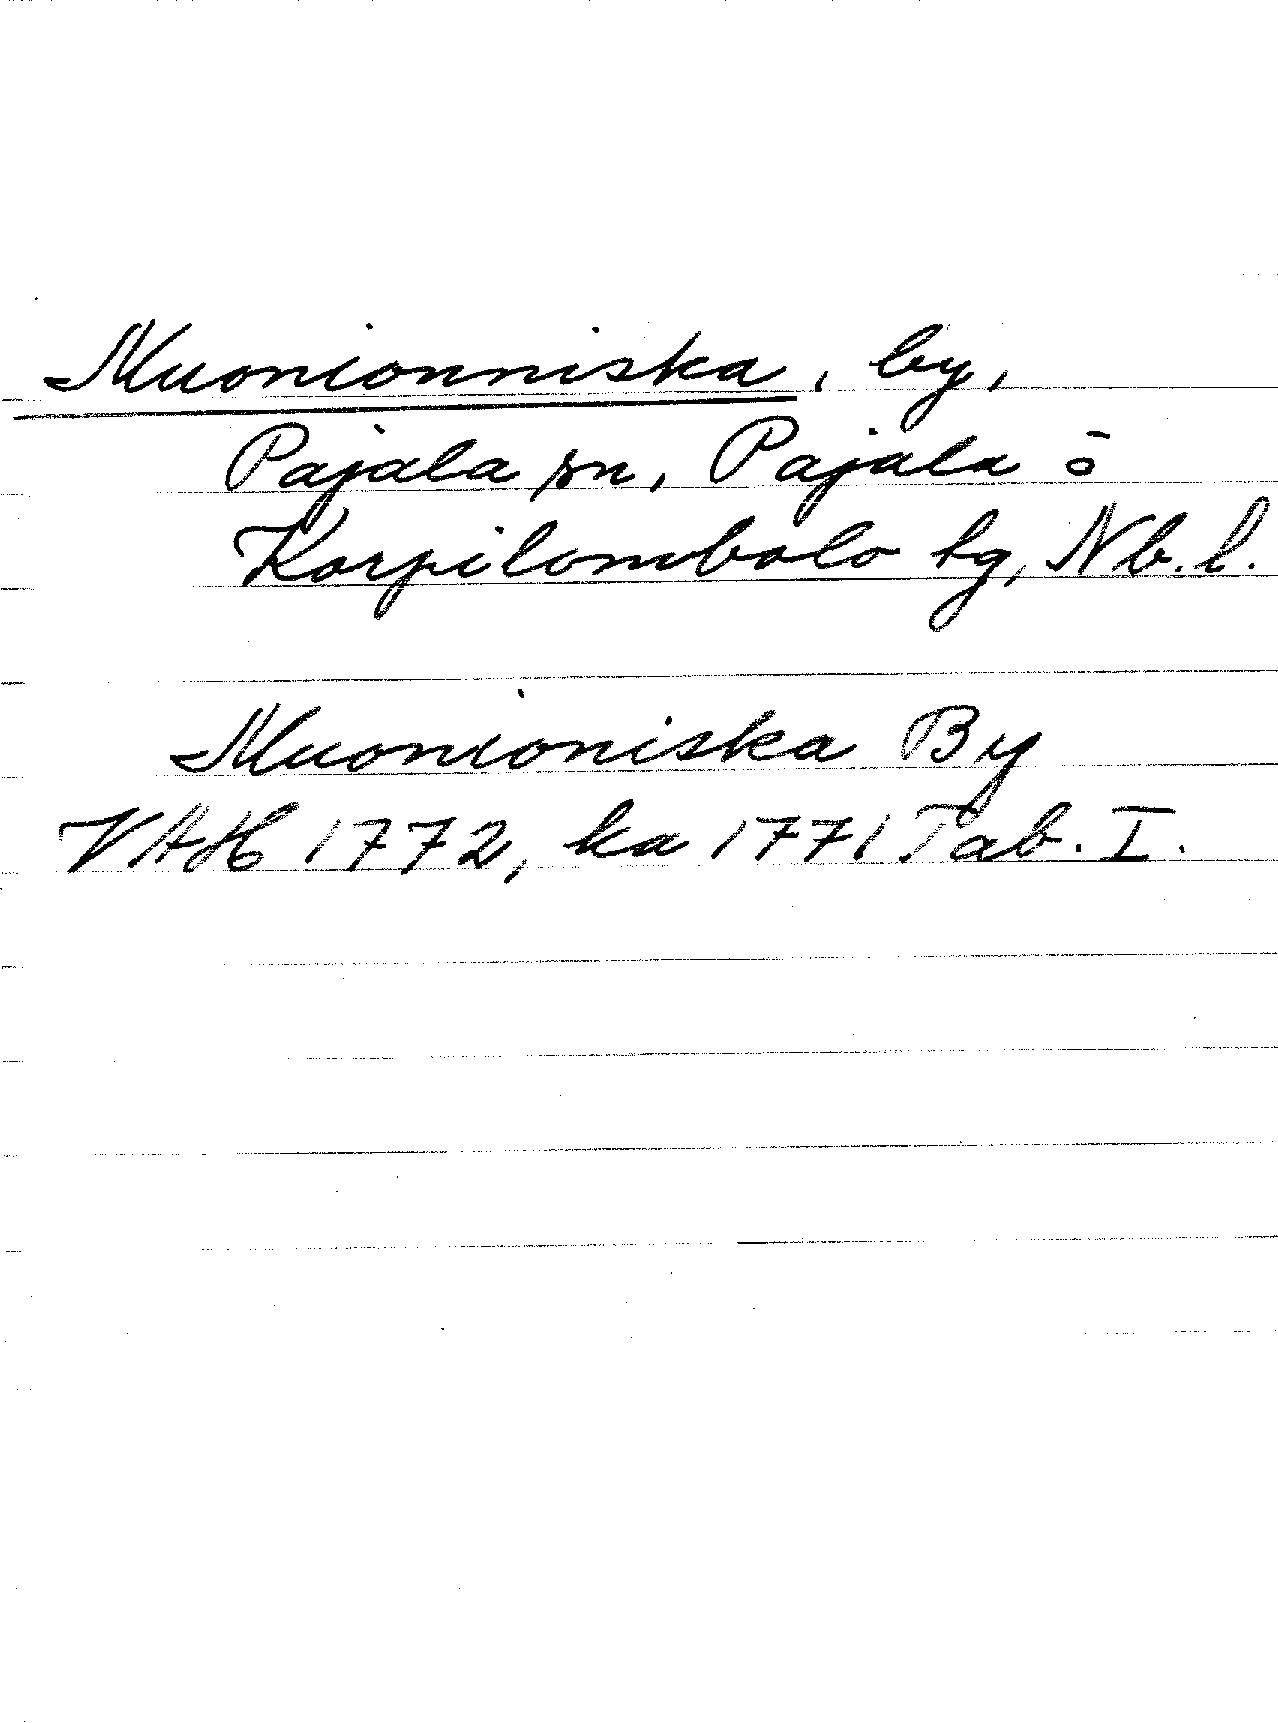 Muonionniska, by,
Pajala sn, Pajala o
Korpilombolo tg, Nb.l.
Muonioniska By
VAH 1772, ka 1771 Tab. I.